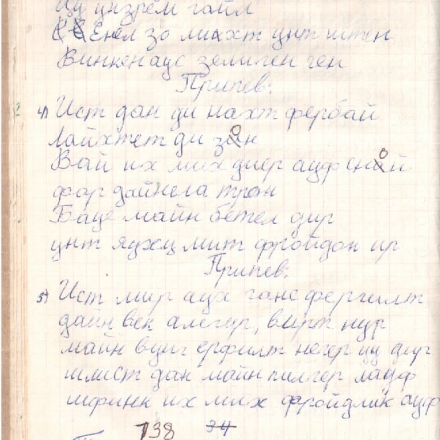 цу унзрем гайл
Енел зо михт унт штен
Винкен аус зелиген ген
Припев:
4) Ист дан ди нахт фербай
Лайхтет ди зон
Вай их мих диер ауф сной
фар дайнела трон
Баце майн бетел дир
унт яухц мит фройдон ир
Припев:
5) Ист мир аух ганс фергилт
дайн век алегир, вирт нур
майн вунг ерфилт негер цу дир
шлист дан майн пилгер лауф
шфинк их мих фройдик ауф
138 74